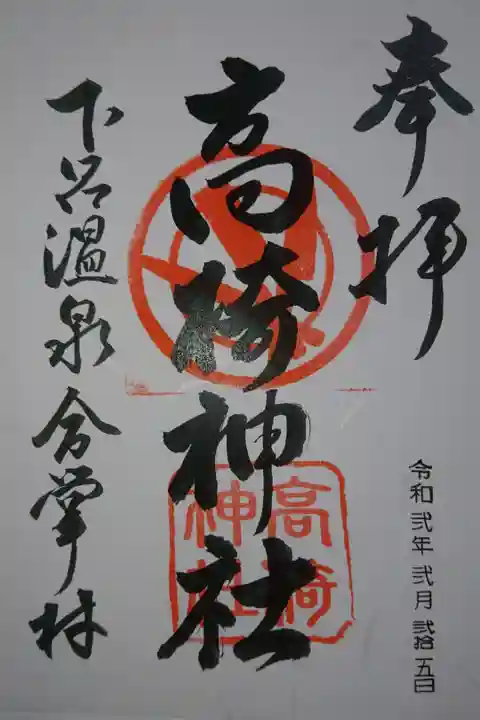 奉拝
高椅神社
高椅神社
令和弐年弐月弐拾五日
下呂温泉合掌村